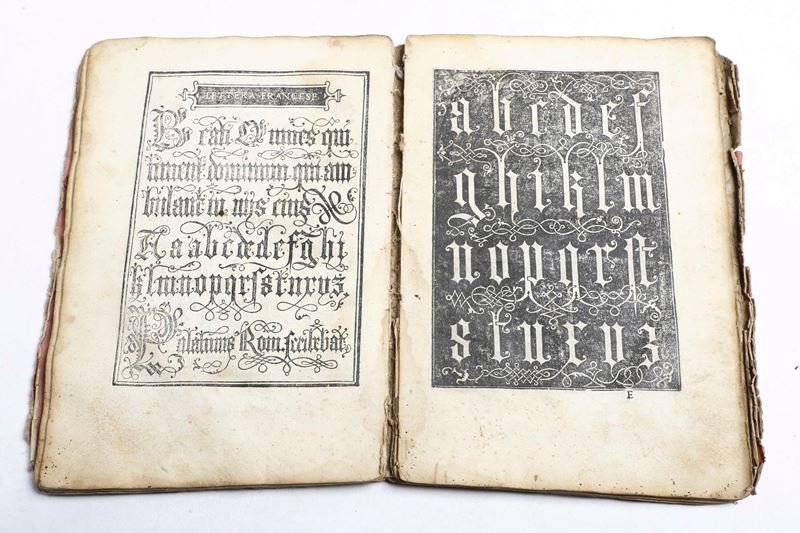 LETTERA FRANCESE
Beati Omnes qui
timent dominum, qui am
bulant in vijs eius
Aabcdefghi
klmnopqrſsturuz
Palatinus Rom. scribebat
a b c d e f
g h i k l m
n o p q r ſt
s t u x v z
E